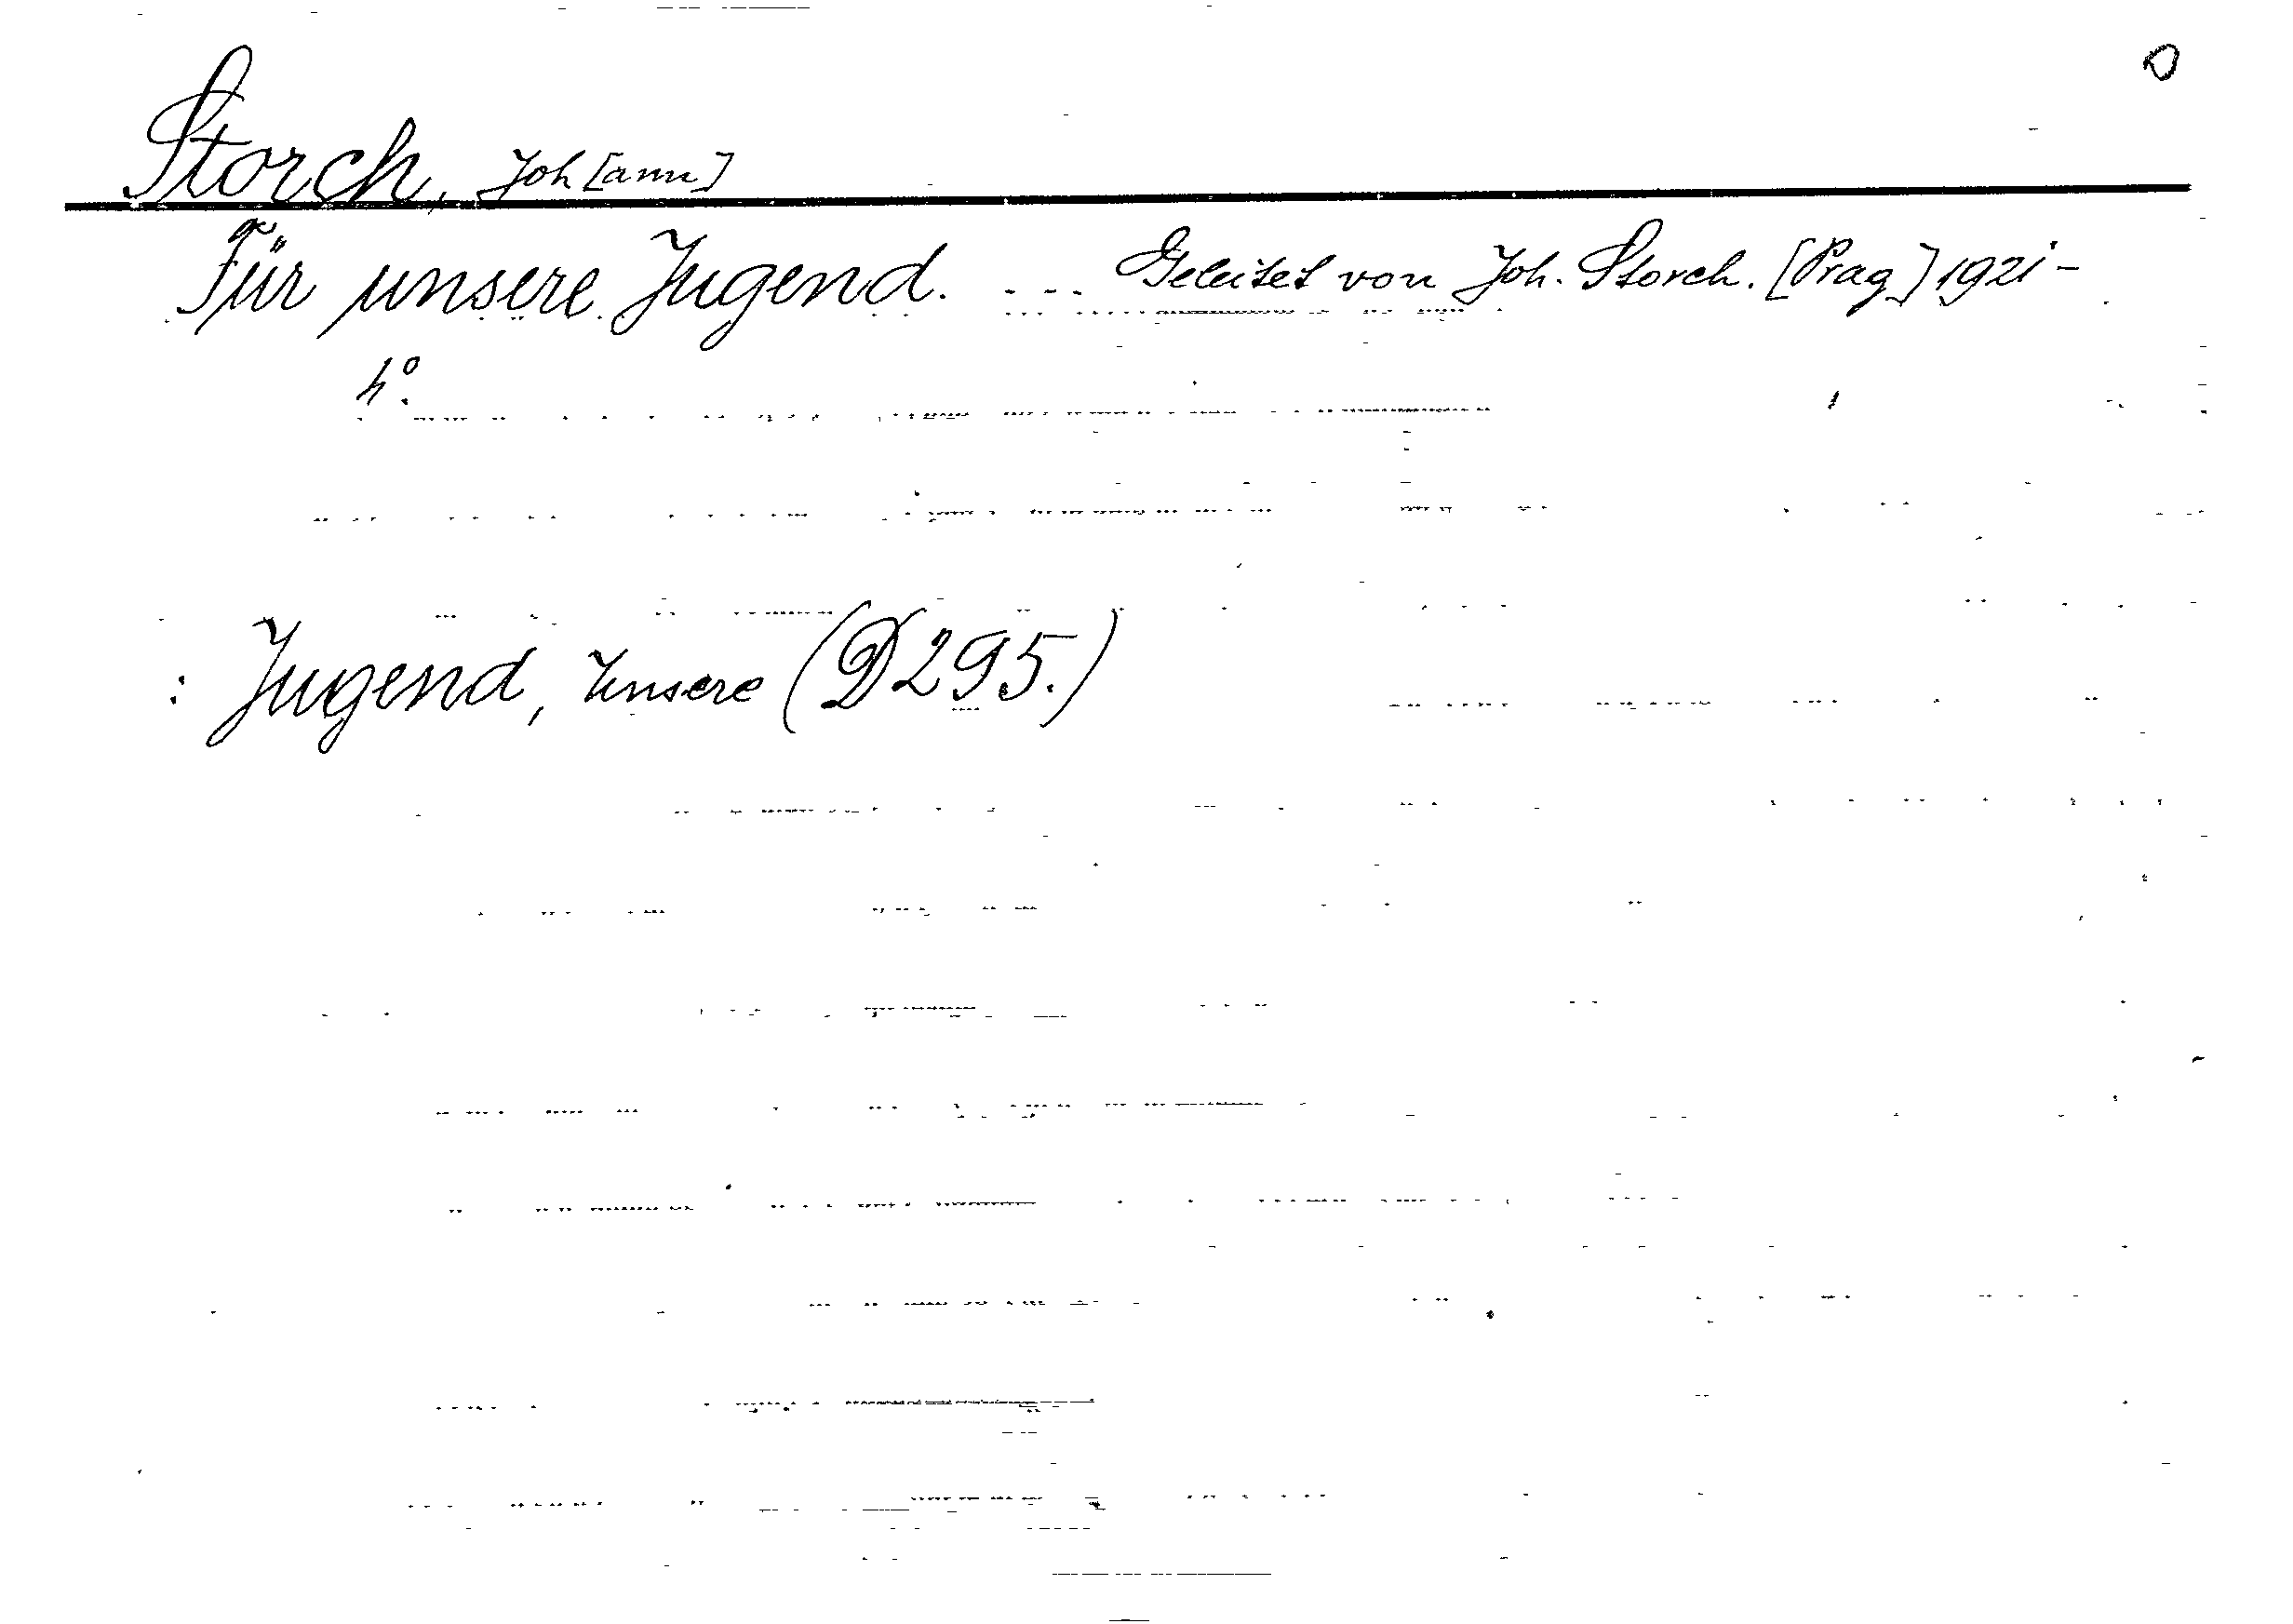 O
Storch, Joh[ann]
Für unsere Jugend. ... Geleitet von Joh. Storch. [Prag] 1921-
4°.
: Jugend, Unsere (D295.)